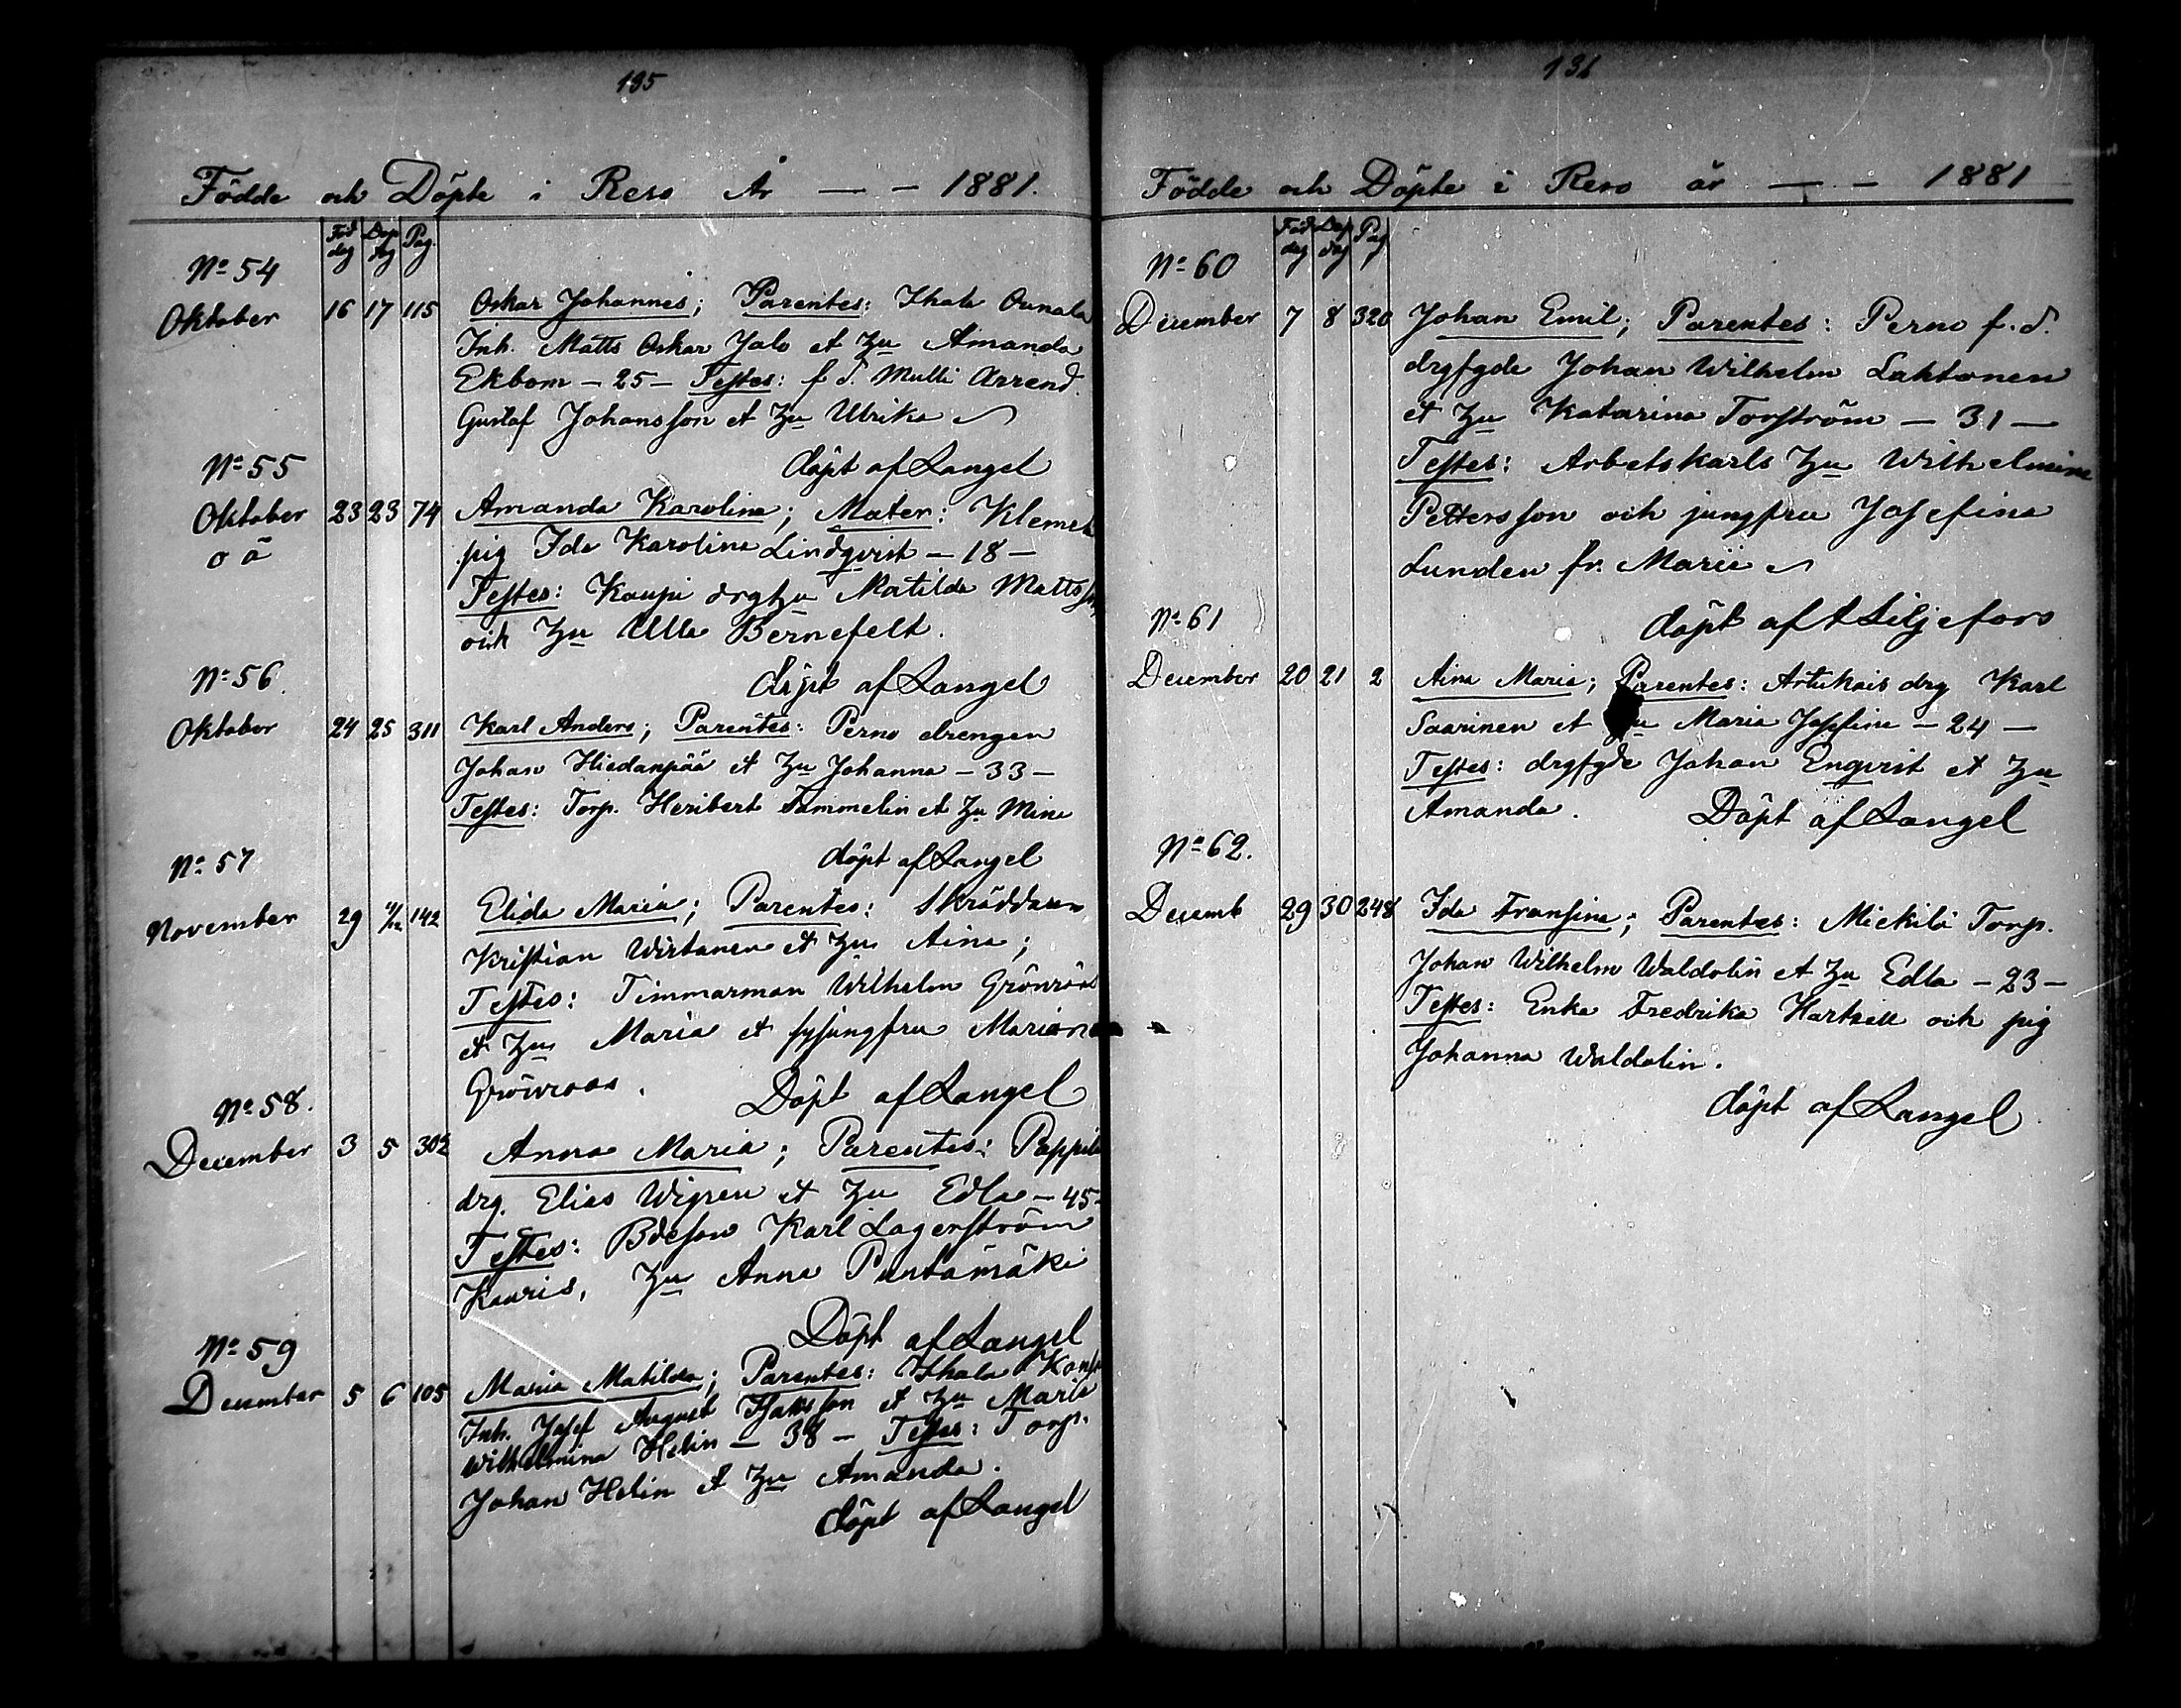 195
Födde och Döpte i Reso År — – 1881.
Föd dag Döp dag Pag.
No 54
Oktober 16 17 115 Oskar Johannes; Parentes: Ihala Ounala
Inh. Matts Oskar Jalo et hu Amanda
Ekbom – 25 – Testes: f d. Mulli Arrend.
Gustaf Johansson et hu Ulrika
döpt af Langel
No 55
Oktober 23 23 74 Amanda Karolina; Mater: Klemet
o ä
pig Ida Karolina Lindqvist – 18 –
Testes: Kaupi drghu Matilda Mattss
och hu Ulla Bernefelt.
döpt af Langel
No 56.
Oktober 24 25 311 Karl Anders; Parentes: Perno drengen
Johan Hiedanpää et hu Johanna – 33 –
Testes: Torp. Heribert Tammelin et hu Mina
döpt af Langel
No 57
November 29 4/12 142 Elida Maria; Parentes: Skräddaren
Kristian Wirtanen et hu Aina;
Testes: Timmarman Wilhelm Grönroos
et hu Maria et syjungfru Mariana
Grönroos. Döpt af Langel
No 58.
December 3 5 302 Anna Maria; Parentes: Pappila
drg. Elias Wigren et hu Edla – 45 –
Testes: Bdeson Karl Lagerström
Kauris, hu Anna Puntamäki
Döpt af Langel
No 59
December 5 6 105 Maria Matilda; Parentes: Ihala
Inh. Josef August Isaksson et hu Maria
Wilhelmina Helin – 38 – Testes: Torp.
Johan Helin et hu Amanda.
döpt af Langel
136
Födde och Döpte i Reso år — – 1881
Föd dag Döp dag Pag
No 60
December 7 8 320 Johan Emil; Parentes: Perno f. d.
drgfgde Johan Wilhelm Lahtonen
et hu Katarina Torström – 31 –
Testes: Arbetskarls hu Wilhelmina
Pettersson och jungfru Josefina
Lunden fr. Marië
döpt af A Liljefors
No 61
December 20 21 2 Aina Maria; Parentes: Artukais drg Karl
Saarinen et hu Maria Josefina – 24 –
Testes: drgfgde Johan Engvist et hu
Amanda. Döpt af Langel
No 62.
Decemb 29 30 248 Ida Fransina; Parentes: Mickilä Torp.
Johan Wilhelm Waldolin et hu Edla – 23 –
Testes: Enka Fredrika Hartzell och pig
Johanna Waldolin.
döpt af Langel